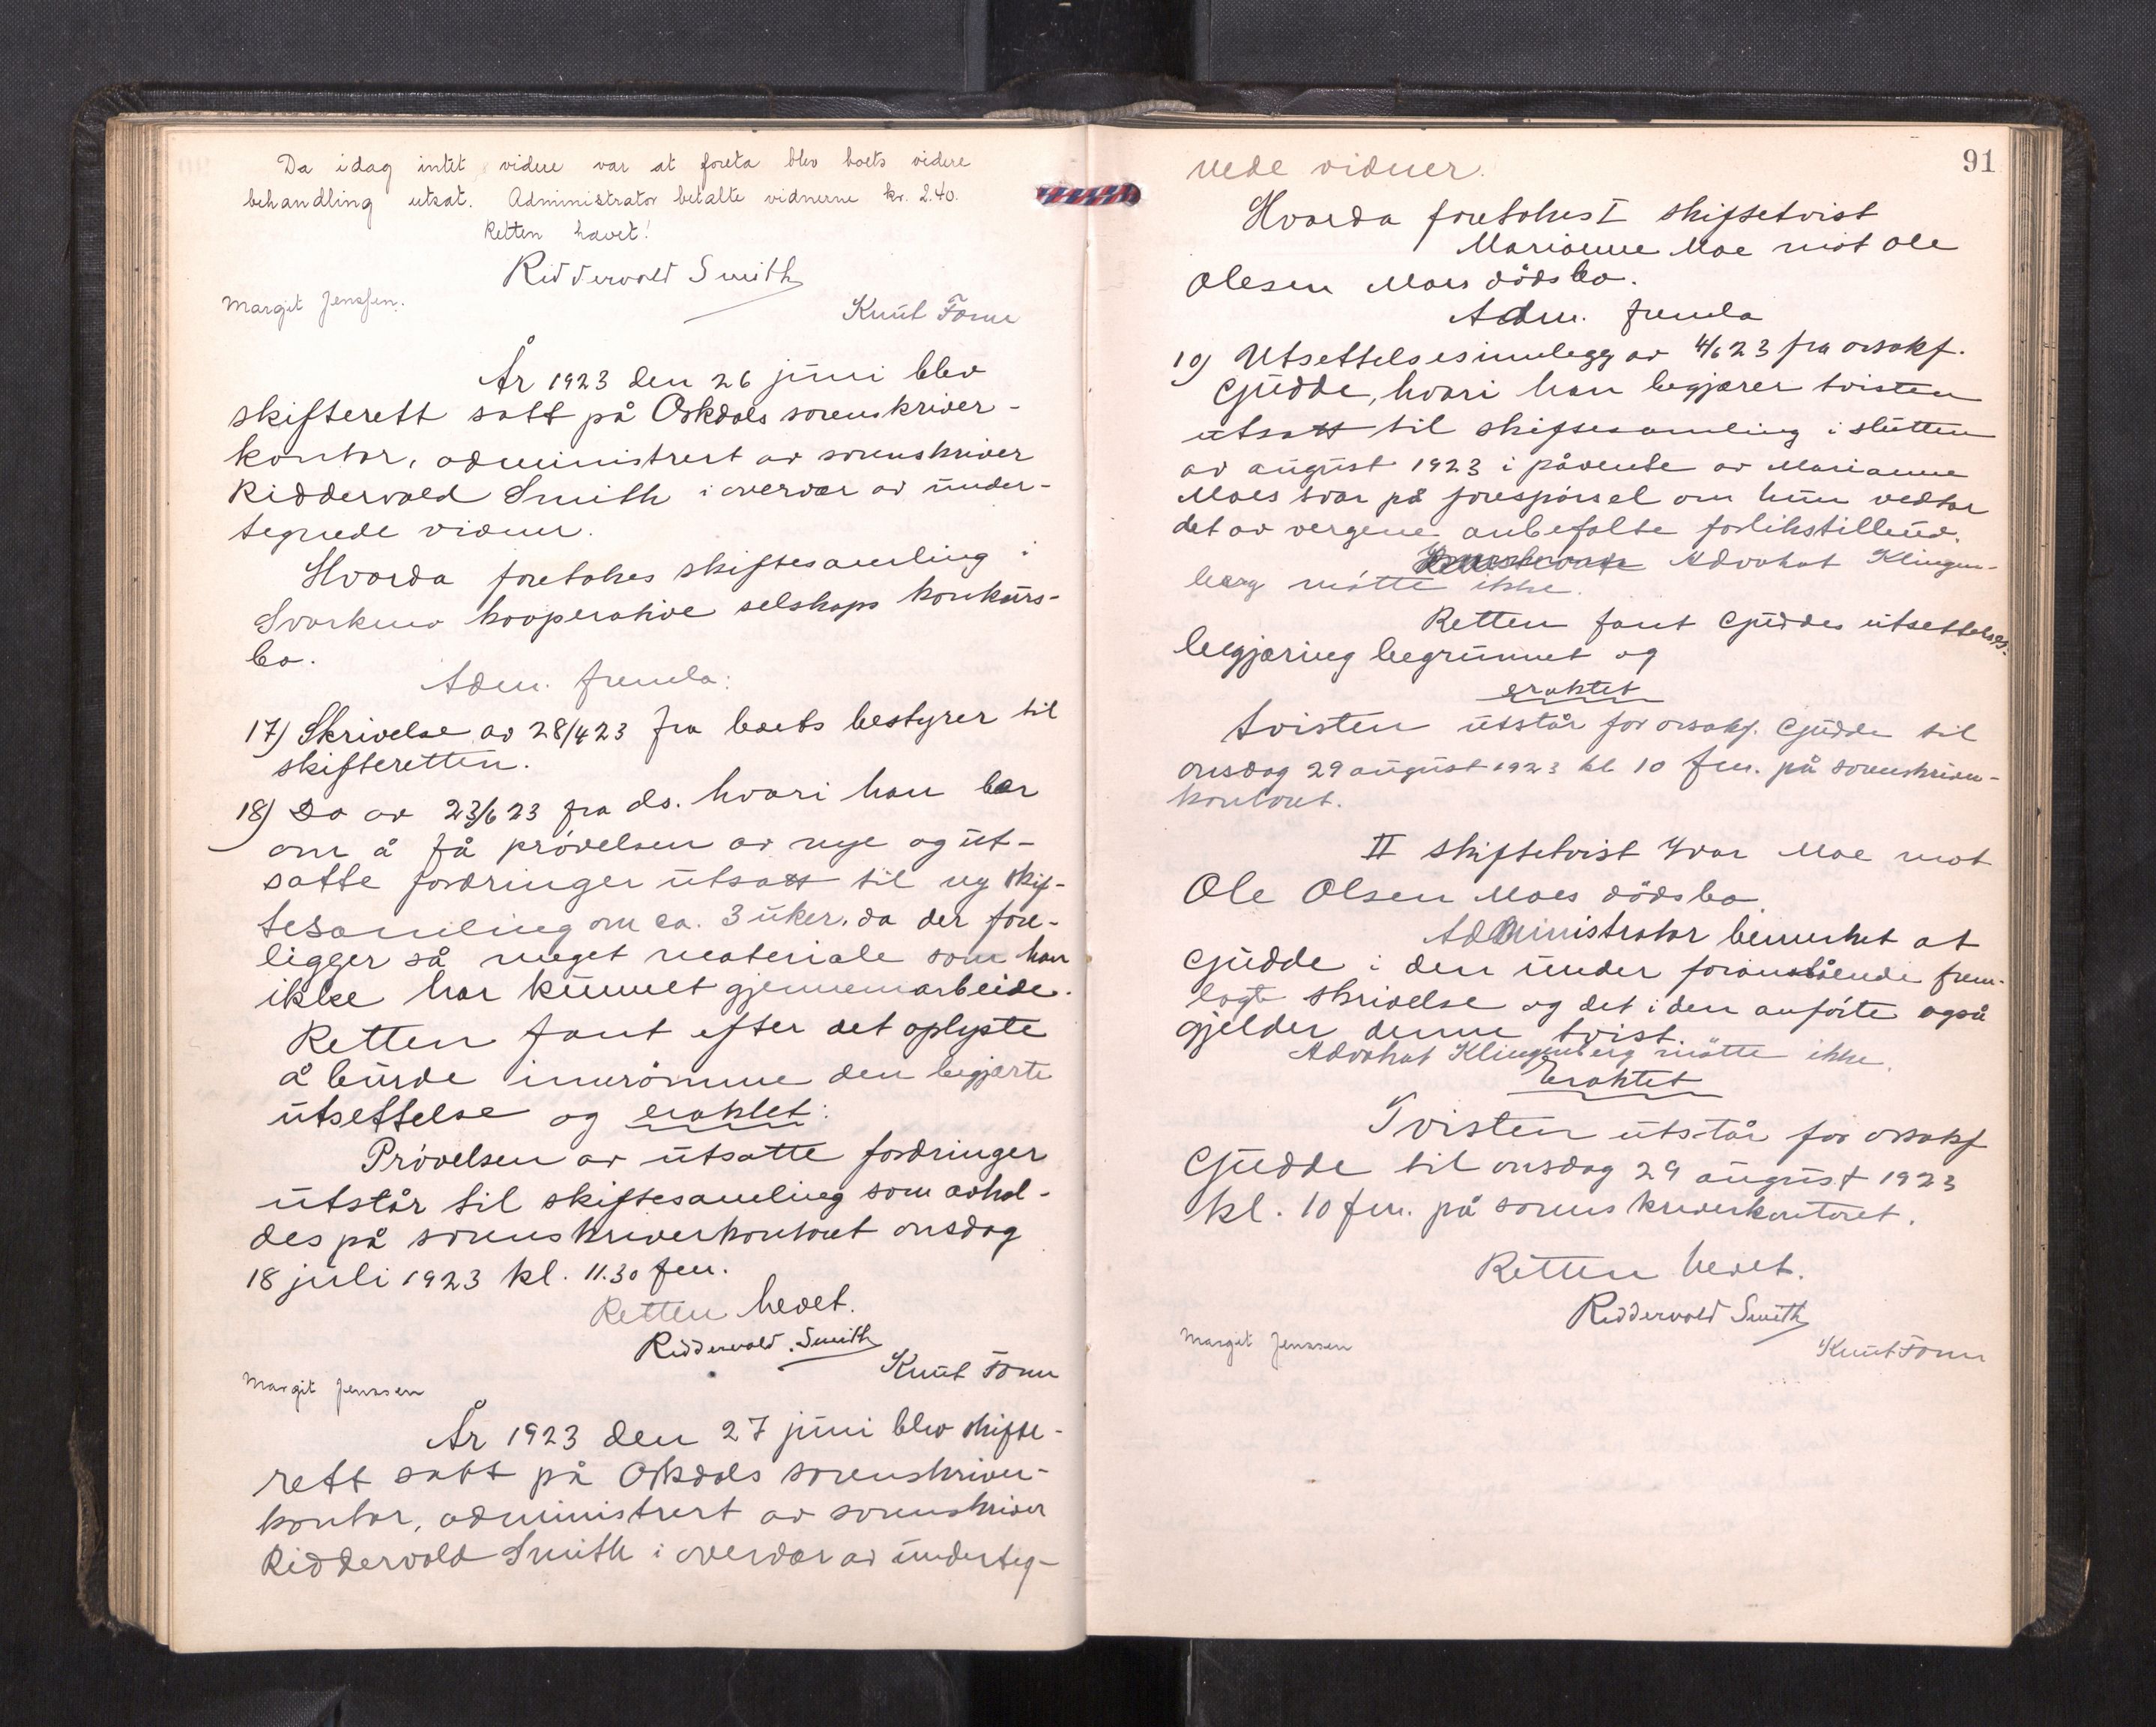 Da idag intet videre var at foreta blev boets videre
behandling utsat. Administrator betalte vidnerne kr. 2.40.
Retten hævet!
Riddervold Smith
Margit Jenssen.
Knut Tømme
År 1923 den 26 juni blev
skifterett satt på Orkdals sorenskriver-
kontor, administrert av sorenskriver
Riddervold Smith i overvær av under-
tegnede vidner.
Hvorda foretokes skiftesamling i
Svorkmo kooperative selskaps konkurs-
bo.
Adm. fremla:
17) Skrivelse av 28/4 23 fra boets bestyrer til
skifteretten.
18) Do av 23/6 23 fra ds. hvori han ber
om å få prøvelsen av nye og ut-
satte fordringer utsatt til ny skif-
tesamling om ca. 3 uker, da der fore-
ligger så meget materiale som han
ikke har kunnet gjennemarbeide.
Retten fant efter det oplyste
å burde innrømme den begjærte
utsettelse og eraktet:
Prøvelsen av utsatte fordringer
utstår til skiftesamling som avhol-
des på sorenskriverkontoret onsdag
18 juli 1923 kl. 11.30 fm.
Retten hevet.
Riddervold Smith
Knut Tømme
Margit Jenssen
År 1923 den 27 juni blev skifte-
rett satt på Orkdals sorenskriver-
kontor, administrert av sorenskriver
Riddervold Smith i overvær av underteg-
91
nede vidner.
Hvorda foretokes I skiftetvist
Marianne Moe mot Ole
Olesen Moes dødsbo.
Adm. fremla
10) Utsettelsesinnlegg av 4/6 23 fra orsakf.
Gjudde, hvori han begjærer tvisten
utsatt til skiftesamling i slutten
av august 1923 i påvente av Marianne
Moes svar på forespørsel om hun vedtar
det av vergene anbefalte forlikstillbud.
Advokat Klingen-
berg møtte ikke.
Retten fant Gjuddes utsettelses-
begjæring begrunnet og
eraktet
tvisten utstår for orsakf. Gjudde til
onsdag 29 august 1923 kl 10 fm. på sorenskriver-
kontoret.
II skiftetvist Ivar Moe mot
Ole Olsen Moes dødsbo.
Administrator bemerket at
Gjudde i den under foranstående frem-
lagte skrivelse og det i den anførte også
gjelder denne tvist.
Advokat Klingenberg møtte ikke.
Eraktet
Tvisten utstår for orsakf
Gjudde til onsdag 29 august 1923
kl. 10 fm. på sorenskriverkontoret.
Retten hevet.
Riddervold Smith
Margit Jenssen
Knut Tømme